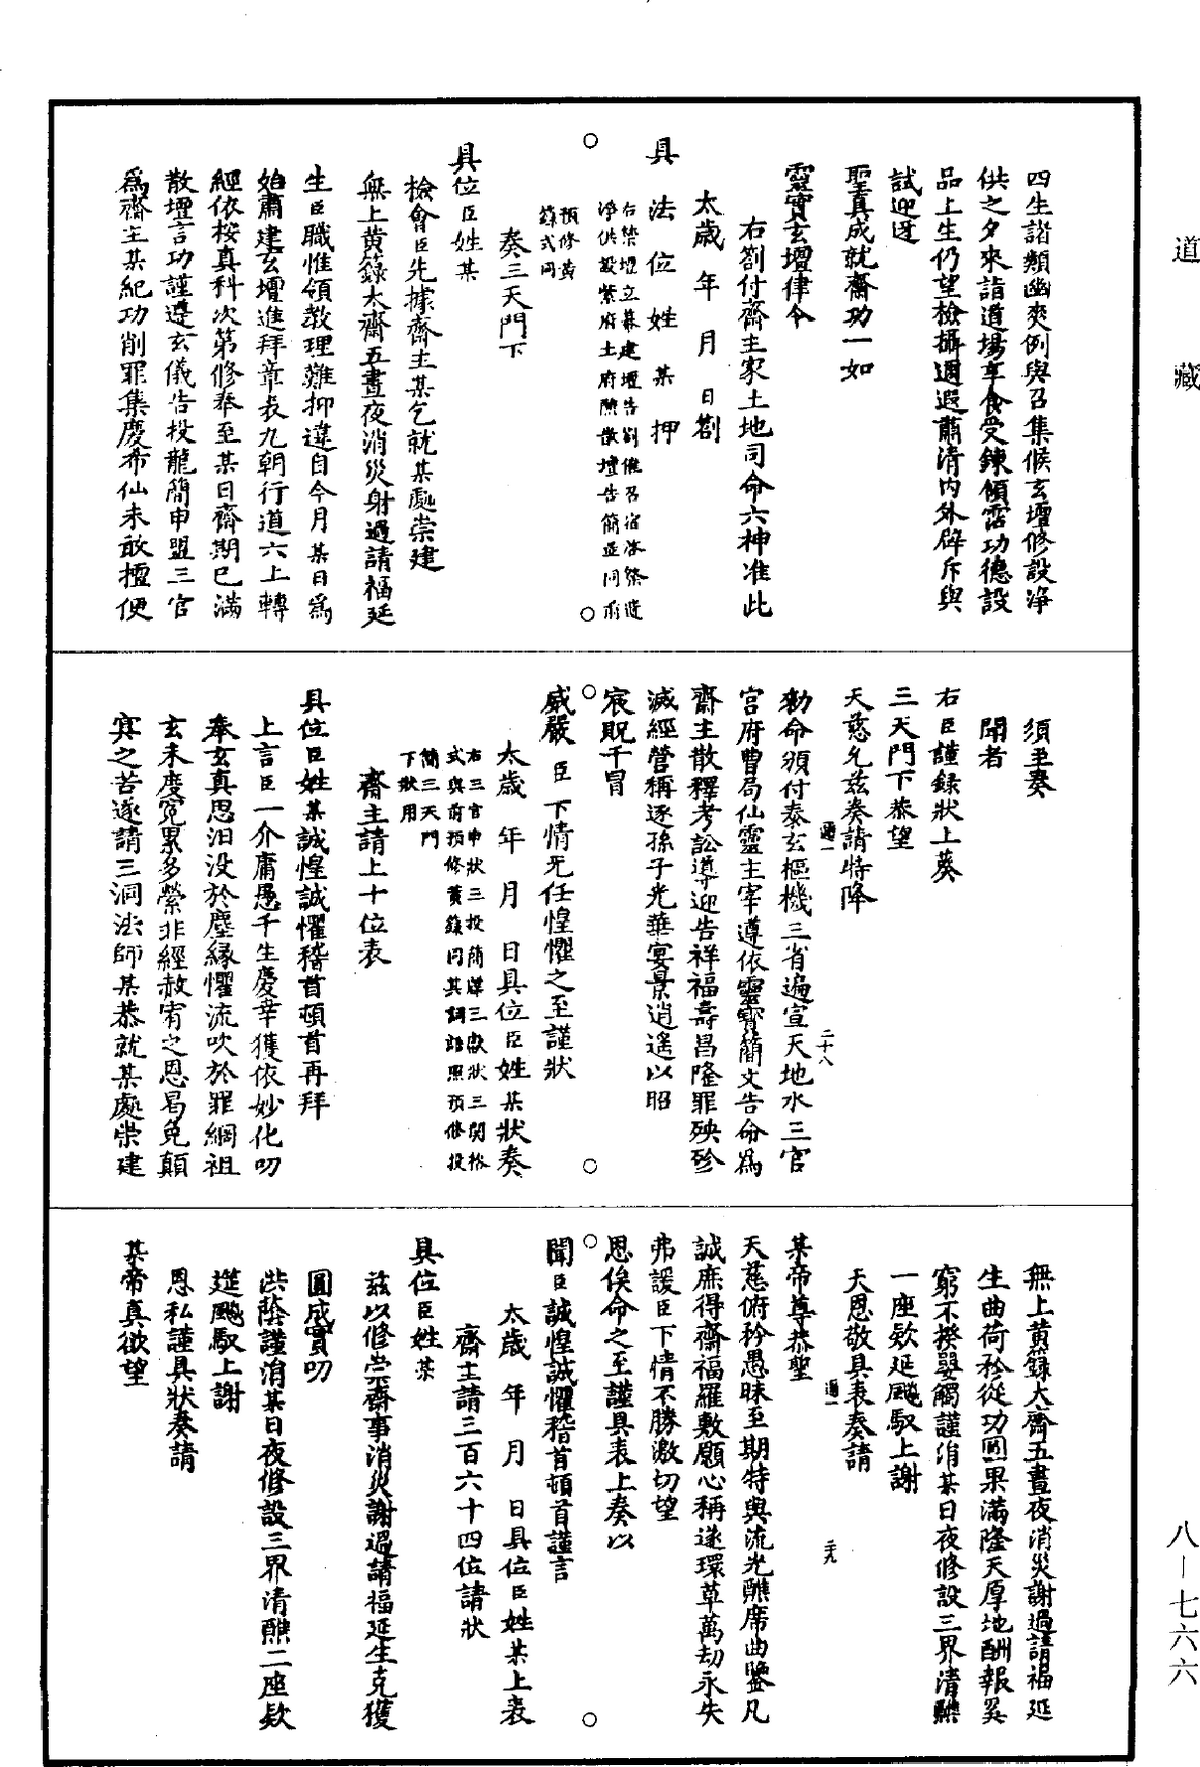 道藏
四生諸類幽爽例與召集候玄壇修設淨
供之夕來詣道場享食受鍊傾露功德設
品上生仍望檢攝遐邇肅清內外辟斥與
試迎迓
聖真成就齋功一如
靈寶玄壇律令
右劄付齋主家土地司命六神准此
太歲年月日劄
具法位姓某押
右禁壇立幕建壇告劄催召宿啓祭進
淨供設紫府土府醮散壇告簡並同前
預修黃
籙式同
奏三天門下
具位臣姓某
檢會臣先據齋主某乞就某處崇建
無上黃籙大齋五晝夜消災謝過請福延
生臣職惟領教理難抑違自今月某日爲
始肅建玄壇進拜章表九朝行道六上轉
經依按真科次第修奉至某日齋期已滿
散壇言功謹遵玄儀告投龍簡申盟三官
爲齋主某紀功削罪集慶布仙未敢擅便
須至奏
聞者
右臣謹錄狀上奏
三天門下恭望
天慈允茲奏請特降
勑命頒付泰玄樞機三省遍宣天地水三官
宮府曹局仙靈主宰遵依靈寶簡文告命爲
齋主散釋考訟導迎吉祥福壽昌隆罪殃殄
滅經營稱遂孫子光華宴景逍遙以昭
宸貺干冒
威嚴臣下情无任惶懼之至謹狀
太歲年月日具位臣姓某狀奏
右三官申狀三投簡牒三獻狀三關格
式與前預修黃籙同其詞語照預修投
簡三天門
下狀用
齋主請上十位表
具位臣姓某誠惶誠懼稽首頓首再拜
上言臣一介庸愚千生慶幸獲依妙化叨
奉玄真思汩沒於塵緣懼流吹於罪網祖
玄未度冤累多縈非經赦宥之恩曷免顛
冥之苦遂請三洞法師某恭就某處崇建
無上黃籙大齋五晝夜消災謝過請福延
生曲荷矜從功圓果滿隆天厚地酬報奚
窮不揆嬰觸謹涓某日夜修設三界清醮
一座欵延飈馭上謝
天恩敬具表奏請
某帝尊恭望
天慈俯矜愚昧至期特與流光醮席曲鑒凡
誠庶得齋福羅敷願心稱遂環草萬劫永失
弗諼臣下情不勝激切望
恩俟命之至謹具表上奏以
聞臣誠惶誠懼稽首頓首謹言
太歲年月日具位臣姓某上表
齋主請三百六十四位請狀
具位臣姓某
茲以修崇齋事消災謝過請福延生克獲
圓成實叨
洪蔭謹涓某日夜修設三界清醮二座欵
延飈馭上謝
恩私謹具狀奏請
某帝真欲望
八―七六六